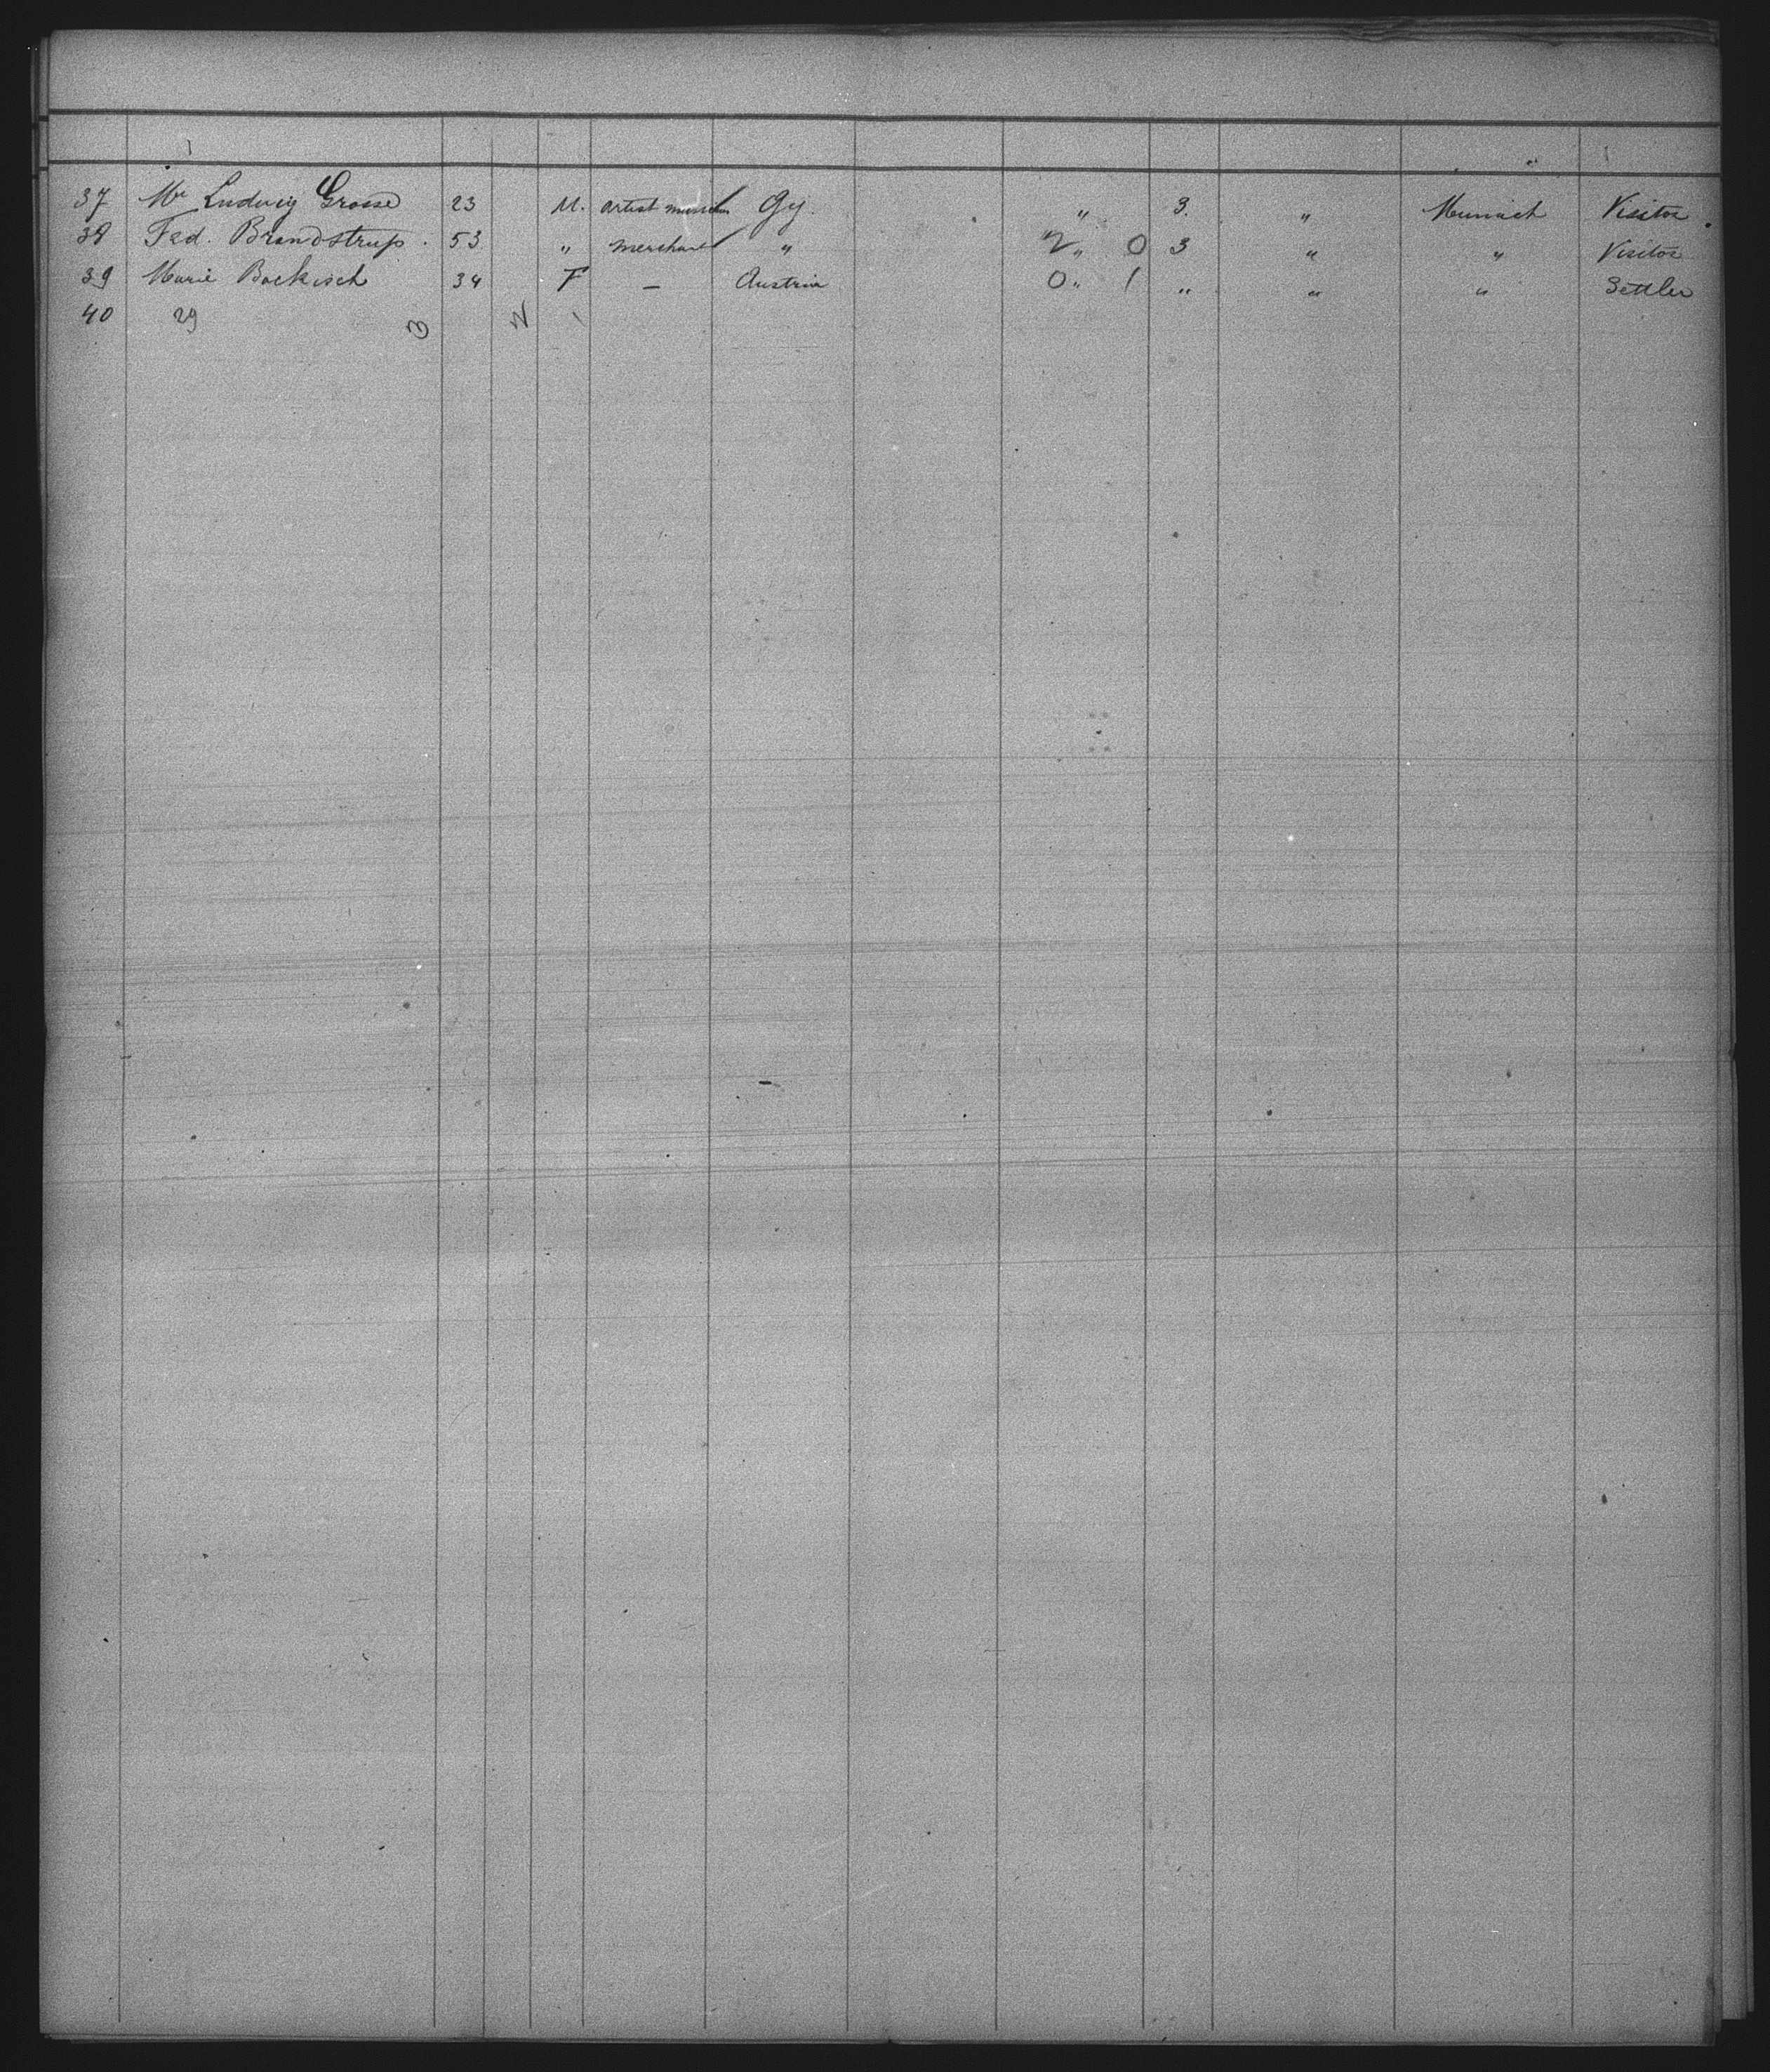 37 Mr Ludwig Grosse 23 M. artist Gy. " 3. " Munich Visitor
38 Fed. Brandstrup. 53 " merchant " 2 " 0 3 " " Visitor
39 Marie Backisch 34 F — Austria 0 " 1 " " " Settler
40 29 3 2 1